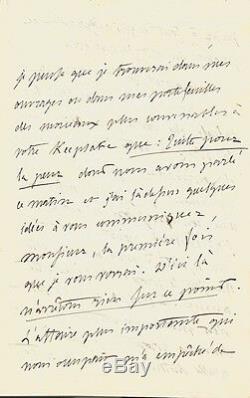 je pense que je trouverai dans mes
ouvrages ou dans mes portefeuilles
des morceaux plus convenables à
votre Keepsake que : Emile pour
la peur dont nous avons parlé
ce matin et j'ai là dessus quelques
idées à vous communiquer,
monsieur, la première fois
que je vous verrai. D'ici là
n'arrêtons rien sur ce point.
L'affaire plus importante qui
nous occupait m'a empêché de